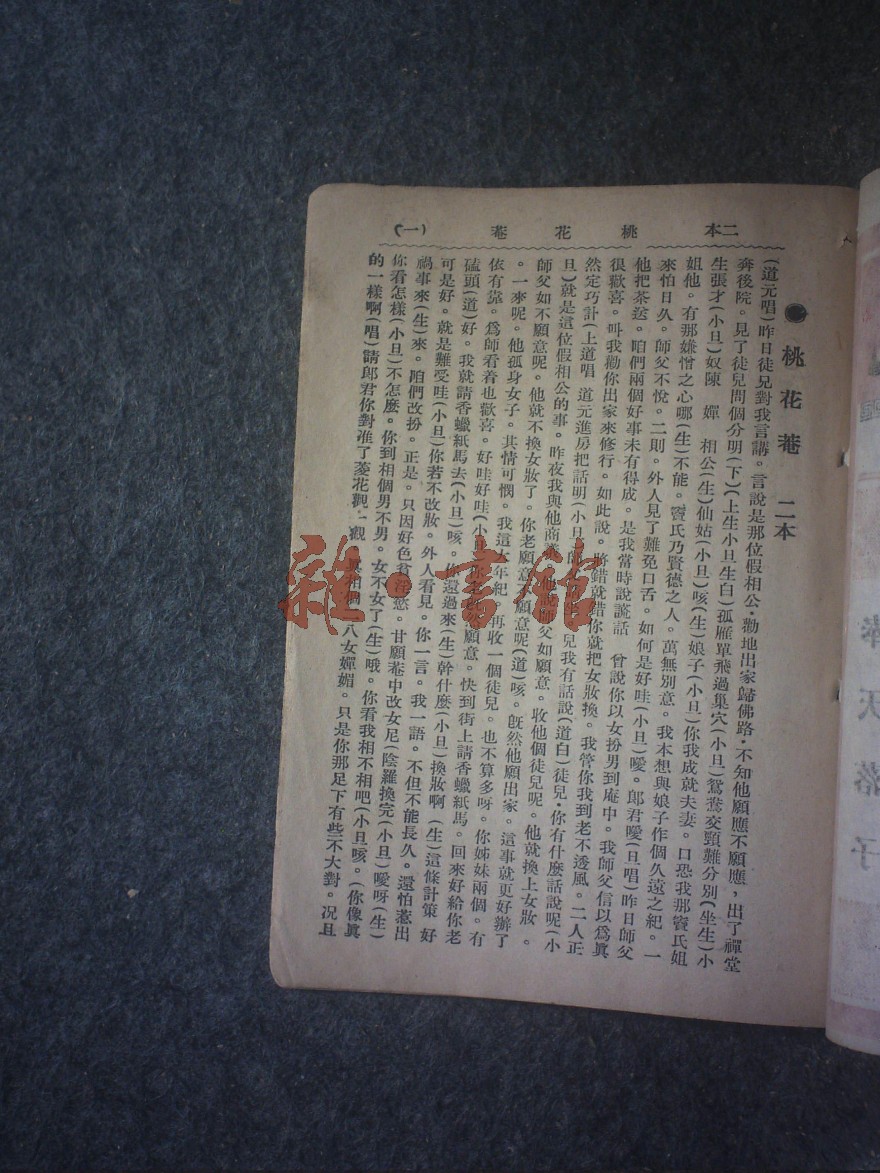 二本 桃花菴 (一)
● 桃花菴 二本
(道元唱)昨日徒兒對我言講。言說是那位假相公・勸他出家歸佛路・不知他願應不願應，出了禪堂
奔後院。見了徒兒問個分明(下)(上生小旦生白)孤雁單飛過集穴(小旦)鴛鴦交頸難分別(坐生)小
生張才(小旦)奴陳 嬋 相公(生)仙姑(小旦)咳(生)娘子(小旦)你我成就夫妻。口恐我那竇氏姐
姐他。有那嫌憎之心哪(生)不能。竇氏乃賢德之人。萬無別意。我本想與娘子作個久遠之紀。一
來怕日久。師父不悅。二則。外人見了難免口舌。如何是好哇(小旦)噯。郎君噯(旦唱)昨日師父
他把茶送。咱們兩個好事未有得成。是我當時說謊話 曾說你以女扮男到庵中。我師父信以爲眞
很歡喜。叫我勸你出家來修行。如此說。將錯就錯你就把女妝換。我管你我到老不透風。二人正
然定巧計(上道唱 道元進房把話明(小旦 師 兒我有話說(道白)徒兒・你有什麼話說呢(小
旦)就是這位假相公的事。昨夜我與他商議 他說師父如願意。收他個徒兒呢。他就換上女妝 。
師父如不願意呢。他就不換女妝了。你老願意不願意呢(道)咳。旣然他願出家。這事就更好辦了
。一來呢。他孤身女子。其情可憫。我這 年紀。再收一個徒兒。也不算多呀。你姊妹兩個。有
依有靠。爲師看着也歡喜。好哇好哇(小 願意。快到街上請香蠟紙馬。回來好給你老
磕頭(道)好。我就請香蠟紙馬去(小旦)咳。你還過來(生)幹什麼(小旦)換妝啊 (生)這條計策 好
可是好。就是難受哇(小旦)你若不改妝。外人看見。你一言。我一語。不但不能長久。還怕惹出
禍事來(生)來。咱們改扮。正是。只因好色貪淫慾。甘願菴中改女尼(陰羅換完(小旦)噯呀(生)
你看怎樣(小旦)不怎麼。你到相個男不男。女不女了(生)哦。你看我相不相吧(小旦咳。(你像眞
的一樣啊(唱)請郎君你對準了菱花觀一觀 眞相個 八女嬋媚。只是你那足下有些不大對。況且
雜・書館
奉天落子